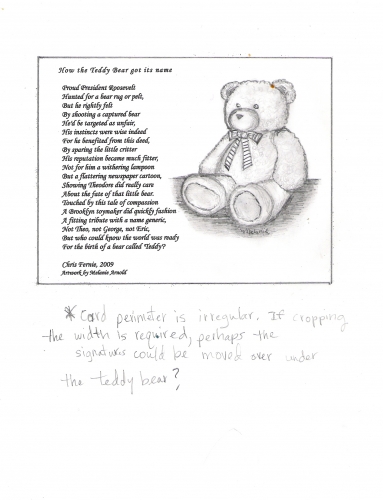 How the Teddy Bear got its name
Proud President Roosevelt
Hunted for a bear rug or pelt,
But he rightly felt
By shooting a captured bear
He'd be targeted as unfair,
His instincts were wise indeed
For he benefited from this deed,
By sparing the little critter
His reputation became much fitter,
Not for him a withering lampoon
But a flattering newspaper cartoon,
Showing Theodore did really care
About the fate of that little bear.
Touched by this tale of compassion
A Brooklyn toymaker did quickly fashion
A fitting tribute with a name generic,
Not Theo, not George, not Eric,
But who could know the world was ready
For the birth of a bear called Teddy?
Chris Fernie, 2009
Artwork by Melanie Arnold
*Card perimeter is irregular. If cropping
the width is required, perhaps the
signature could be moved over under
the teddy bear?